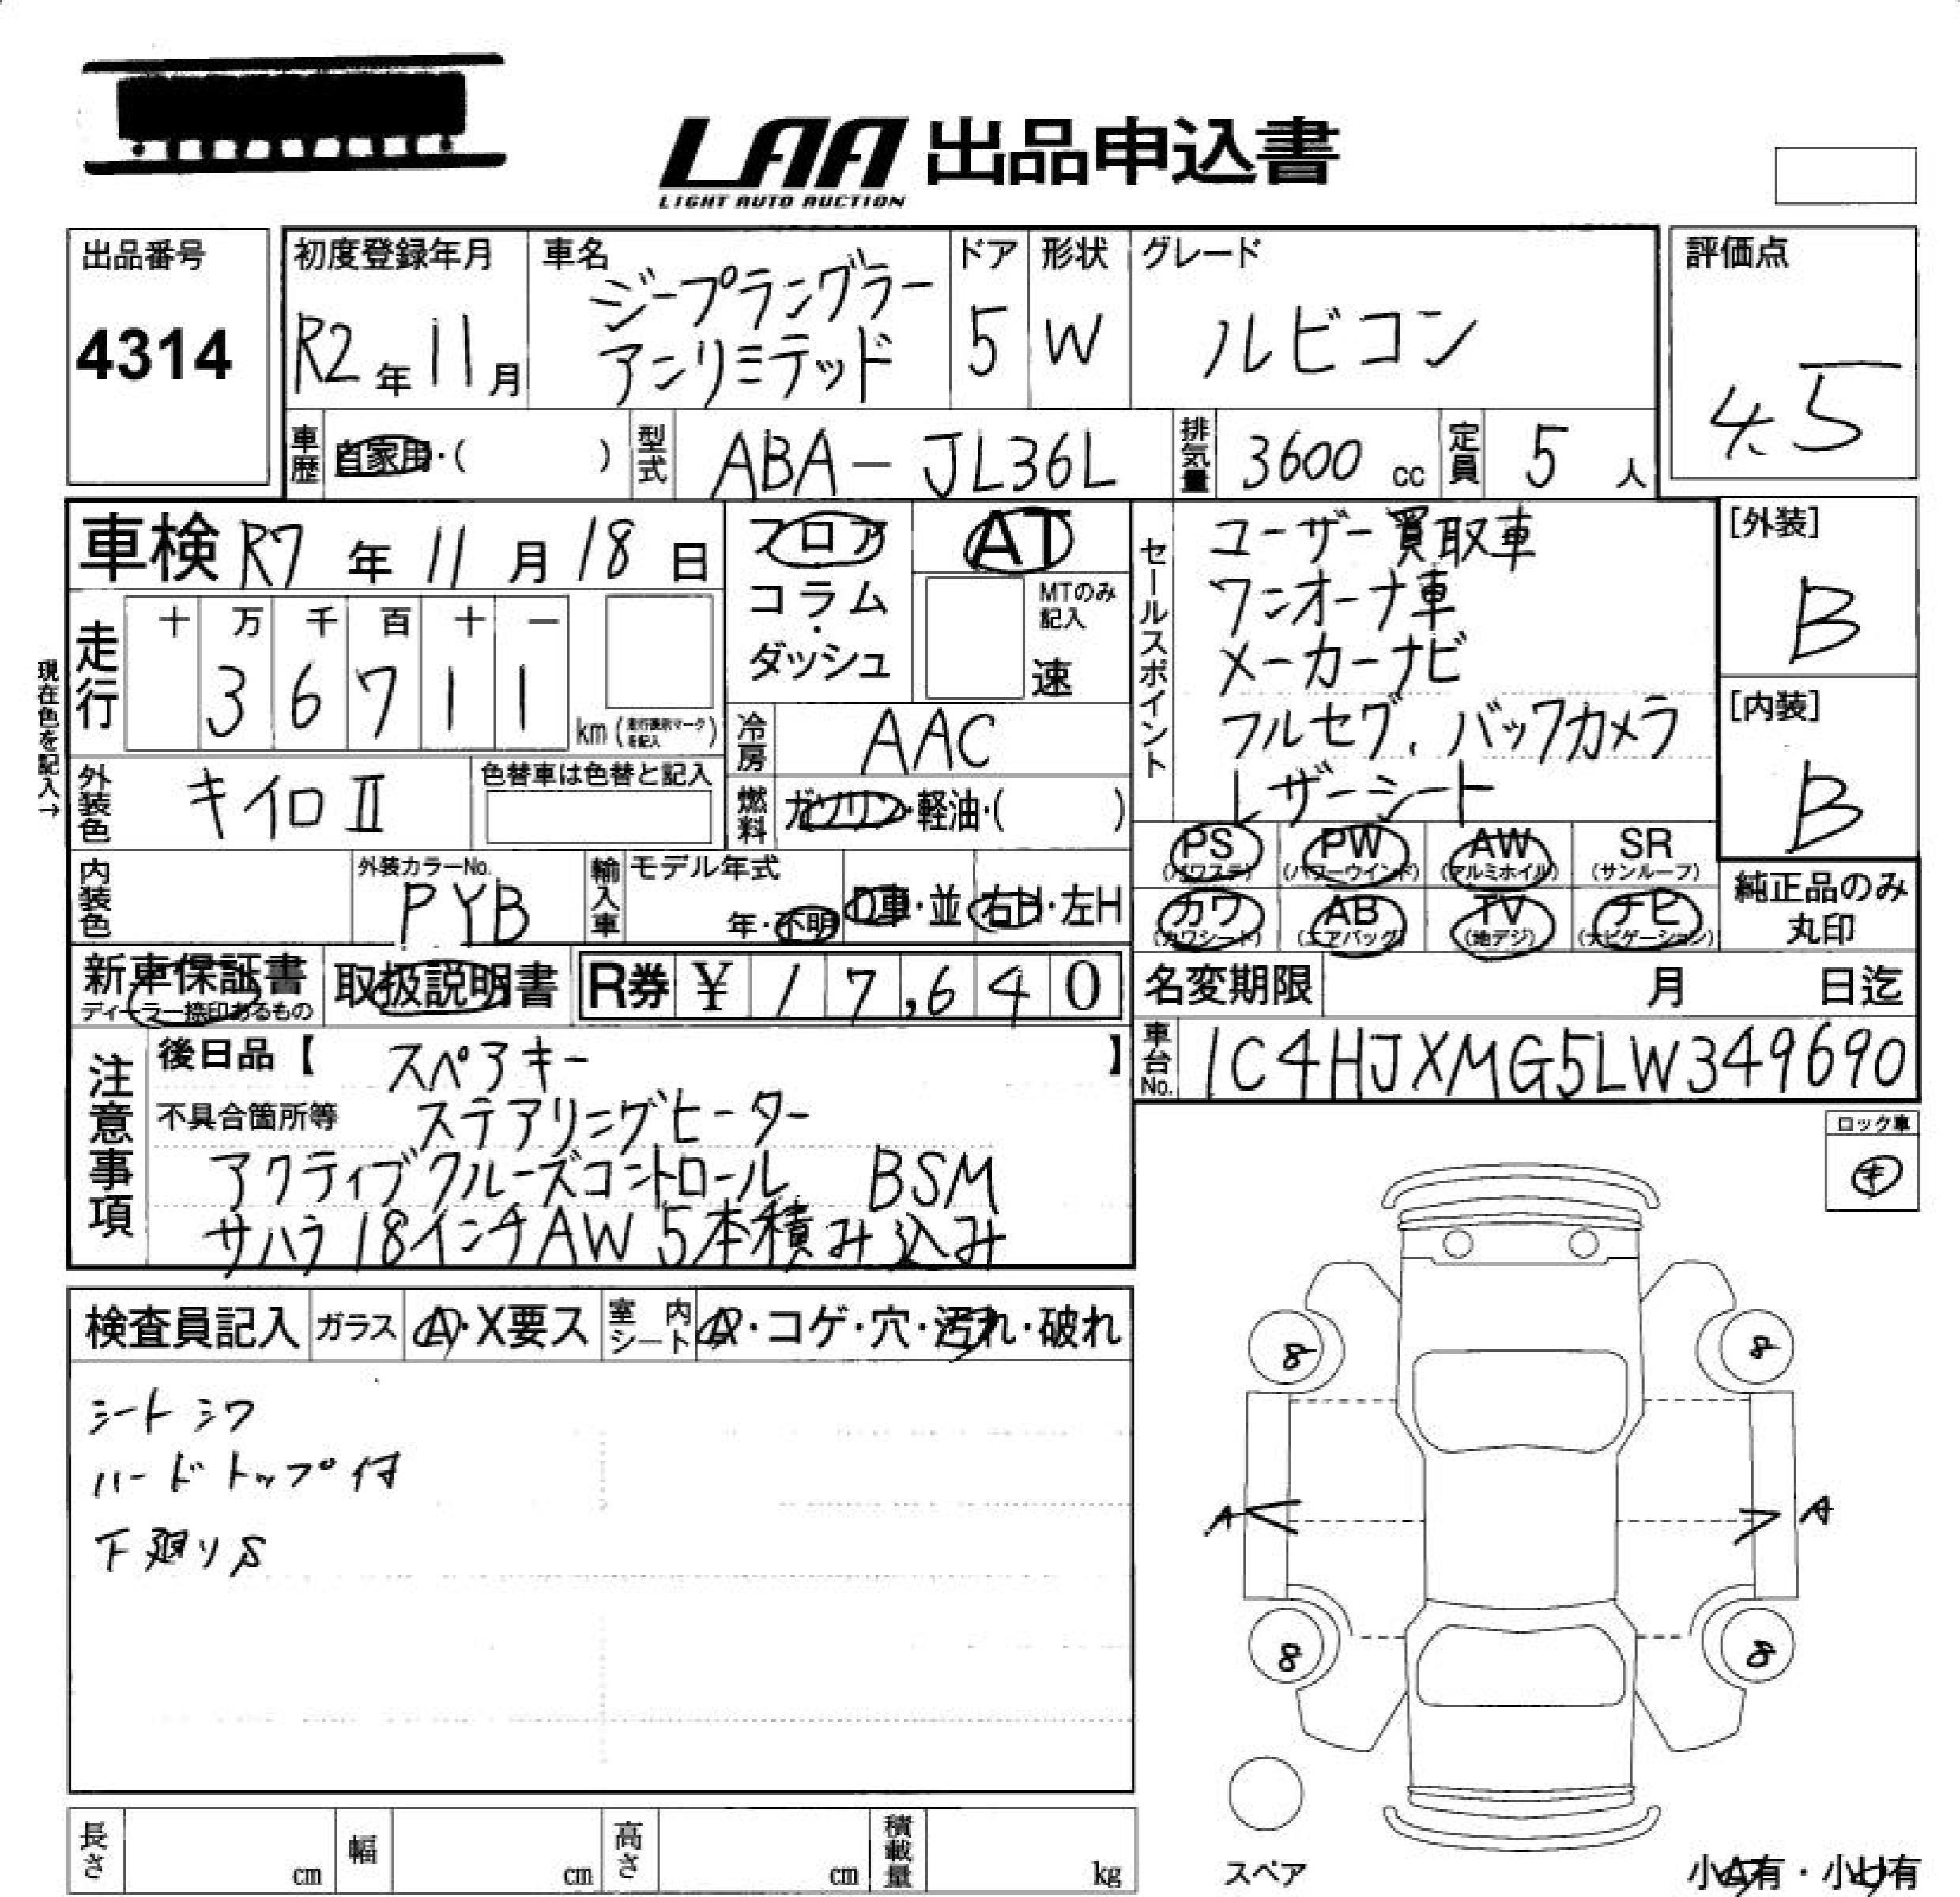 LAA 出品申込書
LIGHT AUTO AUCTION
出品番号
4314
初度登録年月
R2年11月
車名
ジープラングラー
アンリミテッド
ドア
5
形状
W
グレード
ルビコン
評価点
4.5
車歴 自家用・( )
型式 ABA-JL36L
排気量 3600 cc
定員 5 人
車検 R7年11月18日
フロア
コラム・
ダッシュ
AT
MTのみ
記入
速
セールスポイント
ユーザー買取車
ワンオーナ車
メーカーナビ
フルセグ、バックカメラ
レザーシート
[外装]
B
[内装]
B
現在色を記入→
走行
十 万 千 百 十 一
3 6 7 1 1
km(走行表示マークを記入)
冷房 AAC
外装色 キイロⅡ
色替車は色替と記入
燃料 ガソリン・軽油・( )
PS (パワステ)
PW (パワーウインド)
AW (アルミホイル)
SR (サンルーフ)
カワ (カワシート)
AB (エアバッグ)
TV (地デジ)
ナビ (ナビゲーション)
純正品のみ
丸印
内装色
外装カラーNo.
PYB
輸入車
モデル年式
年・不明
D車・並
右H・左H
新車保証書
ディーラー捺印あるもの
取扱説明書
R券 ¥ 17,640
名変期限 月 日迄
車台No. 1C4HJXMG5LW349690
注意事項
後日品【 スペアキー 】
不具合箇所等 ステアリングヒーター
アクティブクルーズコントロール BSM
サハラ18インチAW 5本積み込み
ロック車
キ
検査員記入
ガラス A・X要ス
室内シート A・コゲ・穴・汚れ・破れ
シートシワ
ハードトップ付
下廻りS
8
8
A
A
8
8
スペア
小A有・小U有
長さ cm
幅 cm
高さ cm
積載量 kg